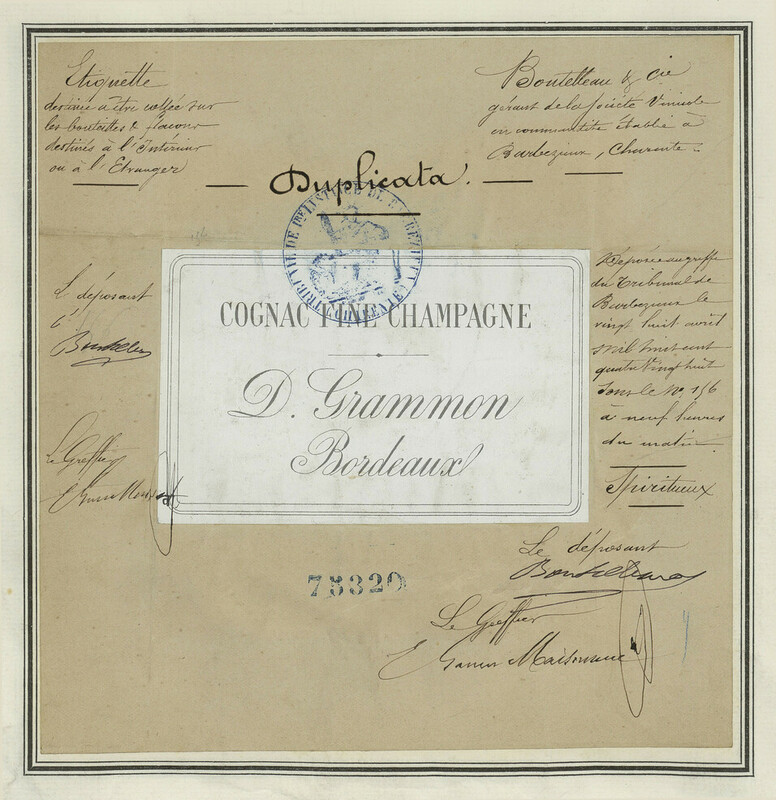 Etiquette
destinée à être collée sur
les bouteilles & flacons
destinés à l'Intérieur
ou à l'Etranger
Boutelleau & Cie
gérant de la société Vinicole
en commandite établie à
Barbezieux, Charente.
Duplicata.
COGNAC FINE CHAMPAGNE
D. Grammon
Bordeaux
Le déposant
Boutelleau
Le Greffier
Déposée au greffe
du Tribunal de
Barbezieux le
vingt huit avril
mil huit cent
quatre vingt huit
sous le No. 156
à neuf heures
du matin.
Spiritueux
75320
Le déposant
Boutelleau
Le Greffier